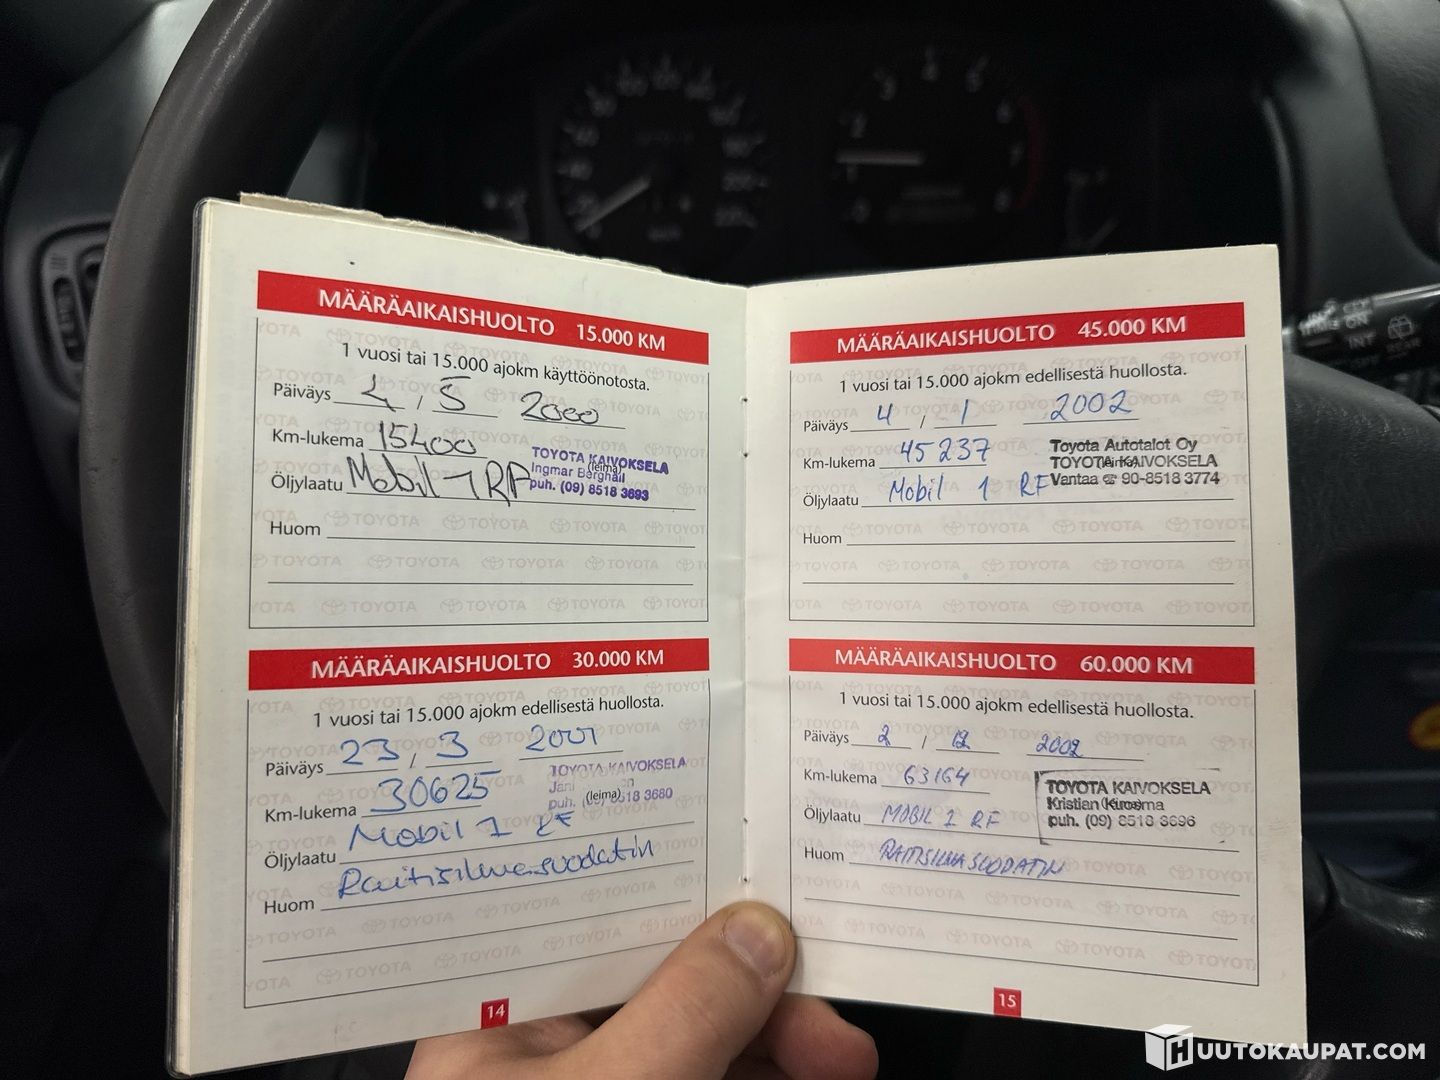 MÄÄRÄAIKAISHUOLTO 15.000 KM
1 vuosi tai 15.000 ajokm käyttöönotosta.
Päiväys 4 / 5 2000
Km-lukema 15400
Öljylaatu Mobil 1 RF
TOYOTA KAIVOKSELA
(leima)
Ingmar Berghäll
puh. (09) 8518 3693
Huom
MÄÄRÄAIKAISHUOLTO 30.000 KM
1 vuosi tai 15.000 ajokm edellisestä huollosta.
Päiväys 23 / 3 2001
Km-lukema 30625
TOYOTA KAIVOKSELA
Jani
(leima)
puh. (09) 8518 3680
Öljylaatu Mobil 1 RF
Huom Raitisilmasuodatin
14
MÄÄRÄAIKAISHUOLTO 45.000 KM
1 vuosi tai 15.000 ajokm edellisestä huollosta.
Päiväys 4 / 1 2002
Km-lukema 45237
Toyota Autotalot Oy
TOYOTA KAIVOKSELA
(leima)
Vantaa ☎ 90-8518 3774
Öljylaatu Mobil 1 RF
Huom
MÄÄRÄAIKAISHUOLTO 60.000 KM
1 vuosi tai 15.000 ajokm edellisestä huollosta.
Päiväys 2 / 12 2002
Km-lukema 63164
TOYOTA KAIVOKSELA
Kristian
(leima)
puh. (09) 8518 3696
Öljylaatu MOBIL 1 RF
Huom RAITISILMASUODATIN
15
HUUTOKAUPAT.COM